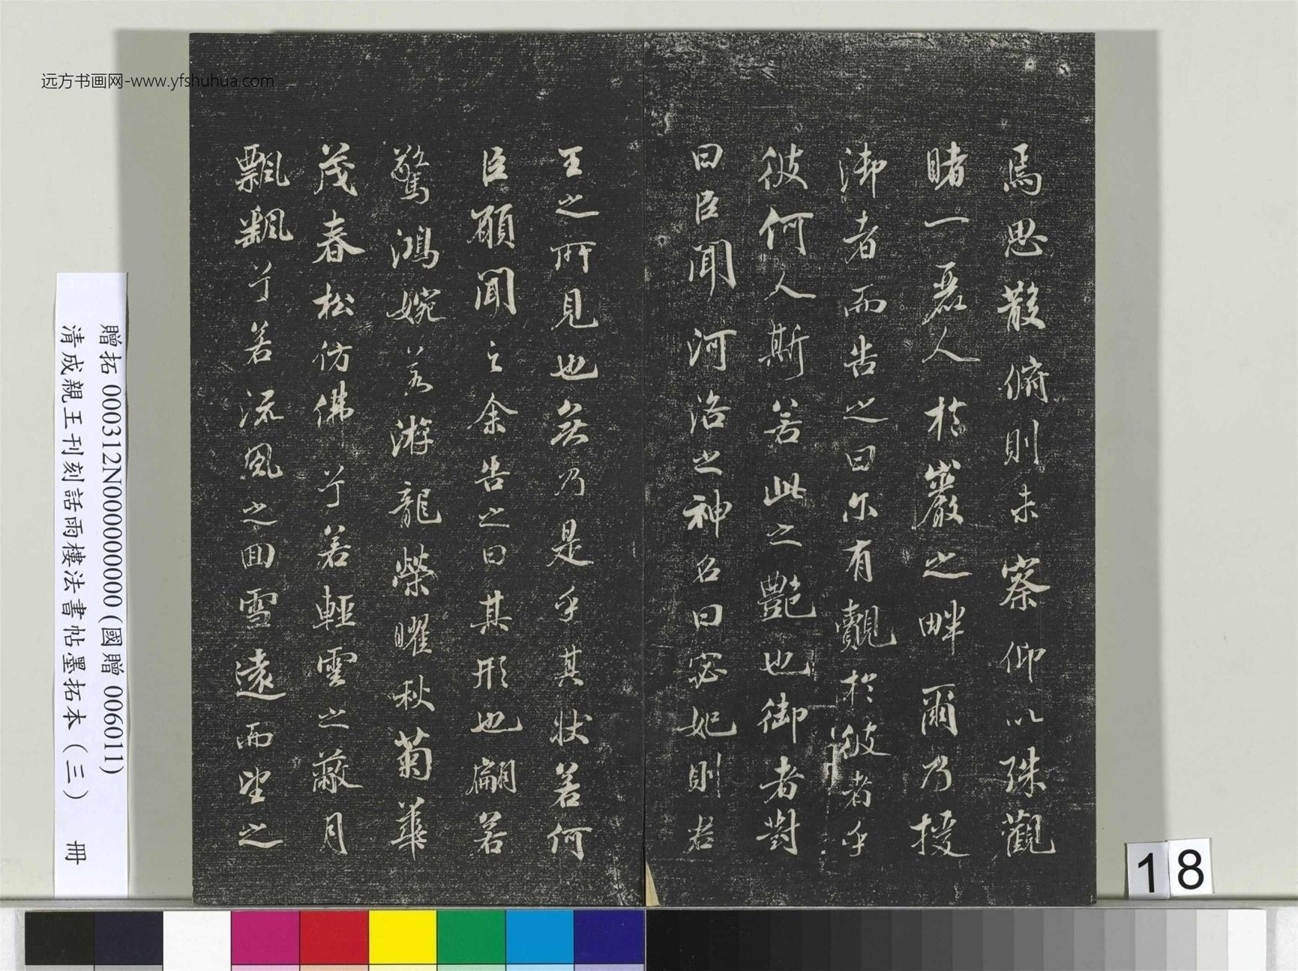 远方书画网-www.yfshuhua.com
焉思散俯則未察仰以殊觀
睹一麗人於巖之畔爾乃援
御者而告之曰尒有覿於彼者乎
彼何人斯若此之艷也御者對
曰臣聞河洛之神名曰宓妃則君
王之所見也無乃是乎其狀若何
臣願聞之余告之曰其形也翩若
驚鴻婉若游龍榮曜秋菊華
茂春松仿佛兮若輕雲之蔽月
飄飖兮若流風之回雪遠而望之
贈拓 000312N000000000 (國贈 006011)
清成親王刊刻話雨樓法書帖墨拓本（三） 冊
18